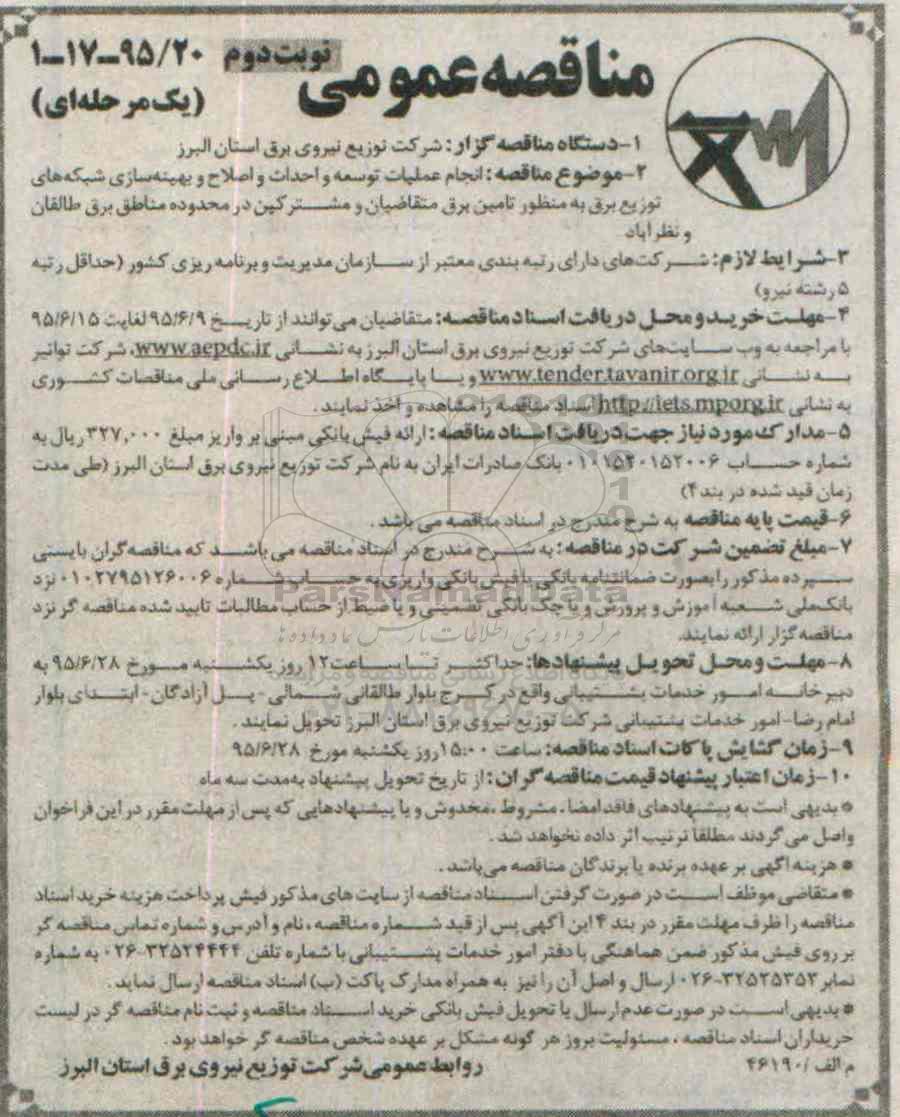 مناقصه عمومی نوبت دوم ۹۵/۲۰-۱۷-۱
(یک مرحله‌ای)
۱-دستگاه مناقصه گزار: شرکت توزیع نیروی برق استان البرز
۲-موضوع مناقصه: انجام عملیات توسعه و احداث و اصلاح و بهینه‌سازی شبکه‌های
توزیع برق به منظور تامین برق متقاضیان و مشترکین در محدوده مناطق برق طالقان
و نظرآباد
۳-شرایط لازم: شرکت‌های دارای رتبه بندی معتبر از سازمان مدیریت و برنامه ریزی کشور (حداقل رتبه
۵ رشته نیرو)
۴-مهلت خرید و محل دریافت اسناد مناقصه: متقاضیان می‌توانند از تاریخ ۹۵/۶/۹ لغایت ۹۵/۶/۱۵
با مراجعه به وب سایت‌های شرکت توزیع نیروی برق استان البرز به نشانی www.aepdc.ir، شرکت توانیر
به نشانی www.tender.tavanir.org.ir و یا پایگاه اطلاع رسانی ملی مناقصات کشوری
به نشانی http://iets.mporg.ir اسناد مناقصه را مشاهده و اخذ نمایند.
۵-مدارک مورد نیاز جهت دریافت اسناد مناقصه: ارائه فیش بانکی مبنی بر واریز مبلغ ۳۲۷,۰۰۰ ریال به
شماره حساب ۰۱۰۱۵۲۰۱۵۲۰۰۶ بانک صادرات ایران به نام شرکت توزیع نیروی برق استان البرز (طی مدت
زمان قید شده در بند۴)
۶-قیمت پایه مناقصه به شرح مندرج در اسناد مناقصه می باشد.
۷-مبلغ تضمین شرکت در مناقصه: به شرح مندرج در اسناد مناقصه می باشد که مناقصه‌گران بایستی
سپرده مذکور را بصورت ضمانتنامه بانکی یا فیش بانکی واریزی به حساب شماره ۰۱۰۲۷۹۵۱۲۶۰۰۶ نزد
بانک‌ملی شعبه آموزش و پرورش و یا چک بانکی تضمینی و یا ضبط از حساب مطالبات تایید شده مناقصه گر نزد
مناقصه گزار ارائه نمایند.
۸-مهلت و محل تحویل پیشنهادها: حداکثر تا ساعت۱۲ روز یکشنبه مورخ ۹۵/۶/۲۸ به
دبیرخانه امور خدمات پشتیبانی واقع در کرج بلوار طالقانی شمالی-پل آزادگان-ابتدای بلوار
امام رضا-امور خدمات پشتیبانی شرکت توزیع نیروی برق استان البرز تحویل نمایند.
۹-زمان گشایش پاکات اسناد مناقصه: ساعت ۱۵:۰۰ روز یکشنبه مورخ ۹۵/۶/۲۸
۱۰-زمان اعتبار پیشنهاد قیمت مناقصه گران: از تاریخ تحویل پیشنهاد به‌مدت سه ماه
* بدیهی است به پیشنهادهای فاقد امضا، مشروط، مخدوش و یا پیشنهادهایی که پس از مهلت مقرر در این فراخوان
واصل می گردند مطلقا ترتیب اثر داده نخواهد شد.
* هزینه آگهی بر عهده برنده یا برندگان مناقصه می‌باشد.
* متقاضی موظف است در صورت گرفتن اسناد مناقصه از سایت های مذکور فیش پرداخت هزینه خرید اسناد
مناقصه را ظرف مهلت مقرر در بند ۴ این آگهی پس از قید شماره مناقصه، نام و آدرس و شماره تماس مناقصه گر
بر روی فیش مذکور ضمن هماهنگی با دفتر امور خدمات پشتیبانی با شماره تلفن ۳۲۵۲۴۴۴۴-۰۲۶ به شماره
نمابر ۳۲۵۲۵۳۵۳-۰۲۶ ارسال و اصل آن را نیز به همراه مدارک پاکت (ب) اسناد مناقصه ارسال نماید.
* بدیهی است در صورت عدم ارسال یا تحویل فیش بانکی خرید اسناد مناقصه و ثبت نام مناقصه گر در لیست
خریداران اسناد مناقصه، مسئولیت بروز هر گونه مشکل بر عهده شخص مناقصه گر خواهد بود.
روابط عمومی شرکت توزیع نیروی برق استان البرز
م الف / ۴۶۱۹۰
ParsNamadData